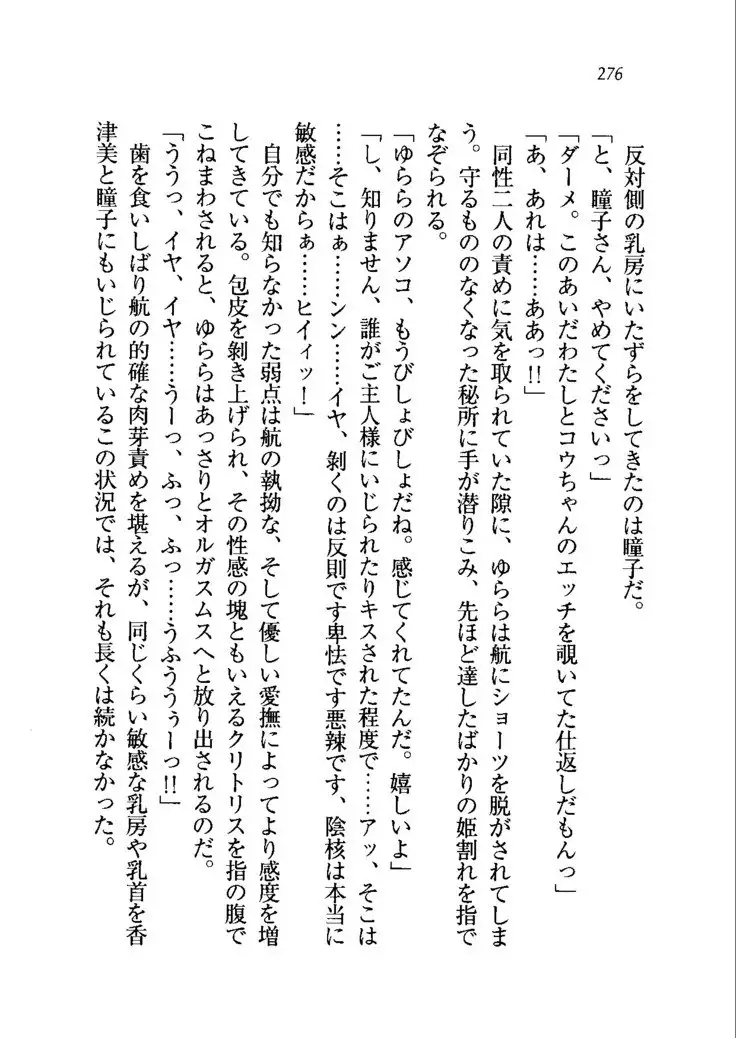 276
反対側の乳房にいたずらをしてきたのは瞳子だ。
「と、瞳子さん、やめてくださいっ」
「ダーメ。このあいだわたしとコウちゃんのエッチを覗いてた仕返しだもんっ」
「あ、あれは……ああっ!!」
同性二人の責めに気を取られていた隙に、ゆららは航にショーツを脱がされてしま
う。守るもののなくなった秘所に手が潜りこみ、先ほど達したばかりの姫割れを指で
なぞられる。
「ゆららのアソコ、もうびしょびしょだね。感じてくれてたんだ。嬉しいよ」
「し、知りません、誰がご主人様にいじられたりキスされた程度で……アッ、そこは
……そこはぁ……シン……イヤ、剝くのは反則です卑怯です悪辣です、陰核は本当に
敏感だからぁ……ヒイィッ！」
自分でも知らなかった弱点は航の執拗な、そして優しい愛撫によってより感度を増
してきている。包皮を剝き上げられ、その性感の塊ともいえるクリトリスを指の腹で
こねまわされると、ゆららはあっさりとオルガスムスへと放り出されるのだ。
「ううっ、イヤ、イヤ……うーっ、ふっ、ふっ……うふううぅーっ!!」
歯を食いしばり航の的確な肉芽責めを堪えるが、同じくらい敏感な乳房や乳首を香
津美と瞳子にもいじられているこの状況では、それも長くは続かなかった。